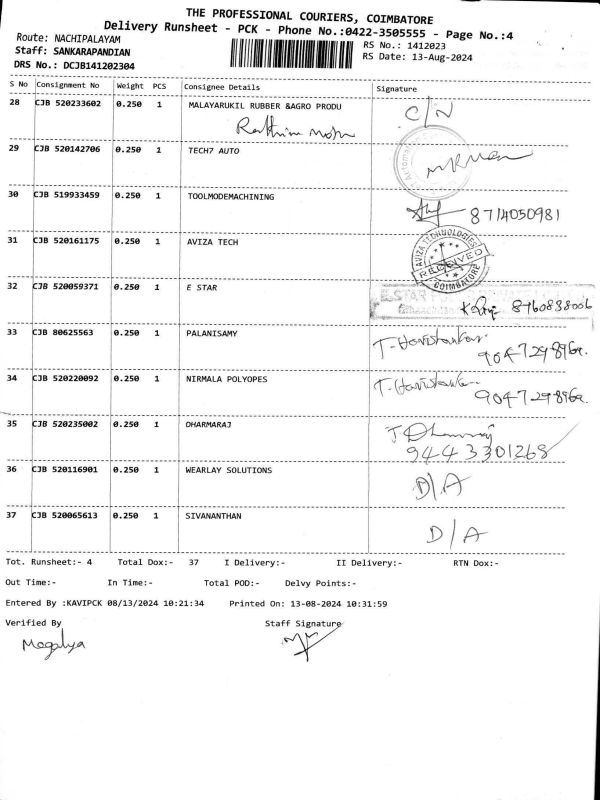 THE PROFESSIONAL COURIERS, COIMBATORE
Delivery Runsheet - PCK - Phone No.:0422-3505555 - Page No.:4
Route: NACHIPALAYAM
RS No.: 1412023
Staff: SANKARAPANDIAN
RS Date: 13-Aug-2024
DRS No.: DCJB141202304
S No Consignment No Weight PCS Consignee Details Signature
28 CJB 520233602 0.250 1 MALAYARUKIL RUBBER &AGRO PRODU C/N
29 CJB 520142706 0.250 1 TECH7 AUTO
30 CJB 519933459 0.250 1 TOOLMODEMACHINING 8714050981
31 CJB 520161175 0.250 1 AVIZA TECH
AVIZA TECHNOLOGIES
RECEIVED
COIMBATORE
32 CJB 520059371 0.250 1 E STAR 8760838006
33 CJB 80625563 0.250 1 PALANISAMY
34 CJB 520220092 0.250 1 NIRMALA POLYOPES
35 CJB 520235002 0.250 1 DHARMARAJ
9443301268
36 CJB 520116901 0.250 1 WEARLAY SOLUTIONS D/A
37 CJB 520065613 0.250 1 SIVANANTHAN D/A
Tot. Runsheet:- 4 Total Dox:- 37 I Delivery:- II Delivery:- RTN Dox:-
Out Time:- In Time:- Total POD:- Delvy Points:-
Entered By :KAVIPCK 08/13/2024 10:21:34 Printed On: 13-08-2024 10:31:59
Verified By Staff Signature